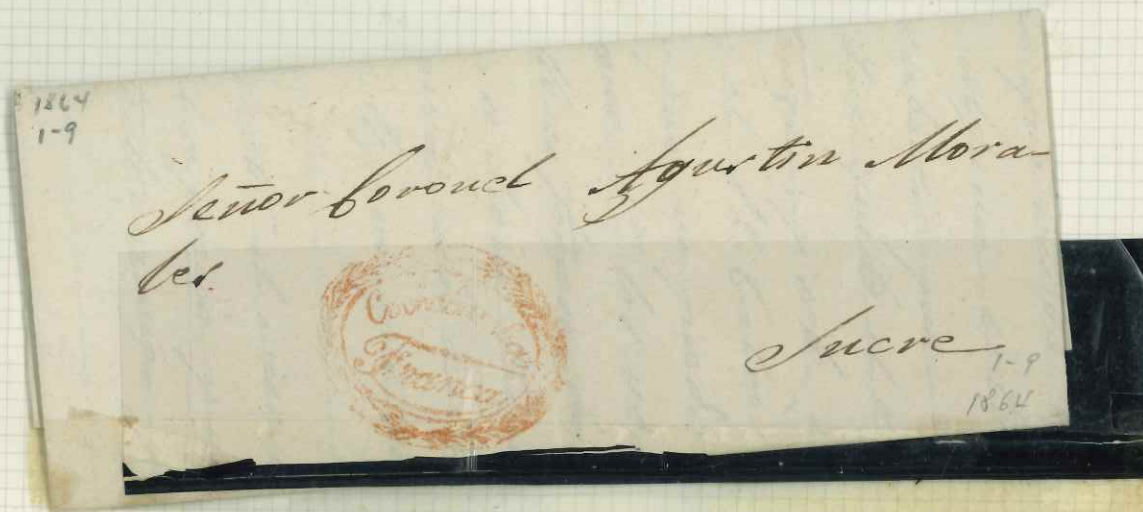 1864
1-9
Señor Coronel Agustin Mora-
les.
Cochabamba
Franca
Sucre
1-9
1864